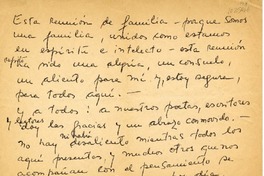 Esta reunión de familia – porque somos
una familia, unidos como estamos
en espíritu e intelecto – esta reunión
repito
ha sido una alegría, un consuelo,
un aliento para mí y, estoy segura,
para todos aquí. —
y a todos: a nuestros poetas, escritores
y lectores doy las gracias y un abrazo conmovido. —
ni habrá
No hay desaliento mientras todos los
aquí presentes, y muchos otros que nos
acompañan con el pensamiento se